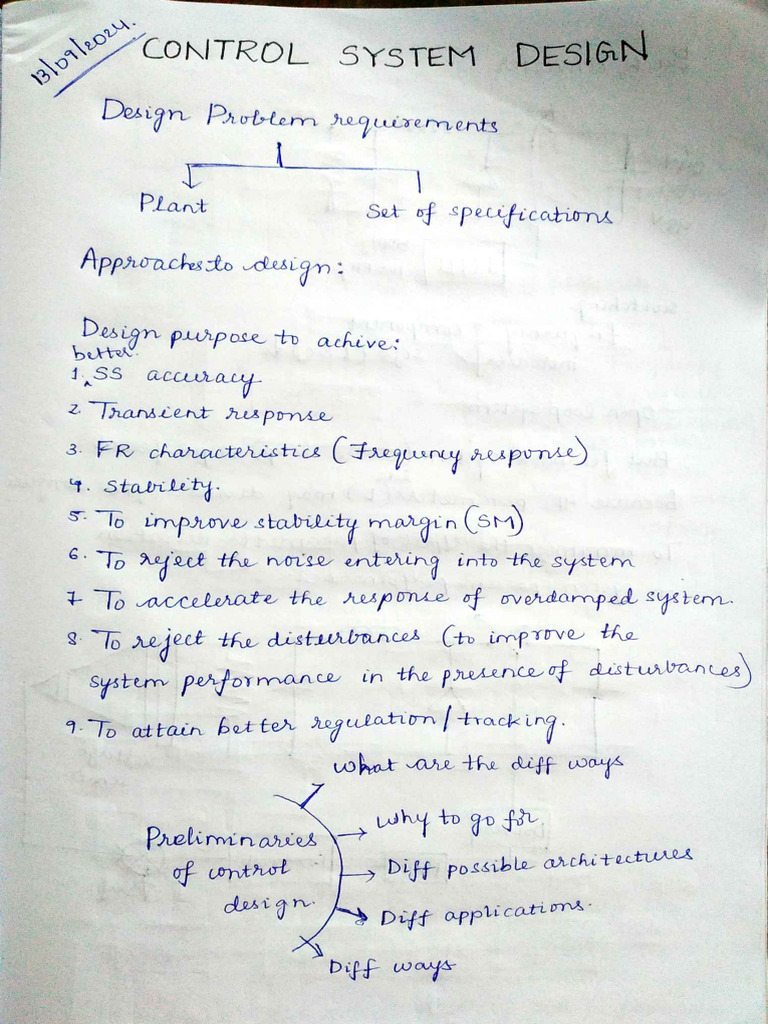 13/09/2024.
CONTROL SYSTEM DESIGN
Design Problem requirements
Plant
Set of specifications
Approaches to design:
Design purpose to achive:
better
1. SS accuracy
2. Transient response
3. FR characteristics (Frequency response)
4. Stability.
5. To improve stability margin (SM)
6. To reject the noise entering into the system
7 To accelerate the response of overdamped system.
8. To reject the disturbances (to improve the
system performance in the presence of disturbances)
9. To attain better regulation / tracking.
What are the diff ways
Why to go for.
Preliminaries
of control
design.
Diff possible architectures
Diff applications.
Diff ways